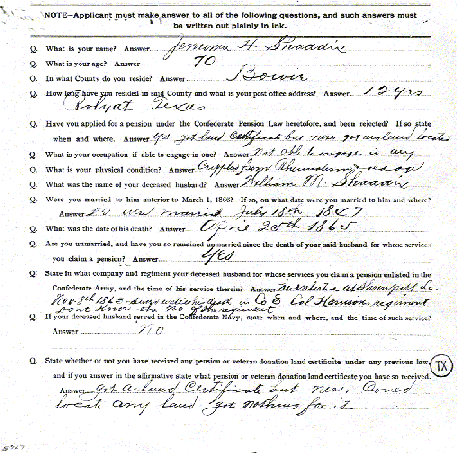 NOTE—Applicant must make answer to all of the following questions, and such answers must
be written out plainly in ink.
Q. What is your name? Answer H.
Q. What is your age? Answer 70
Q. In what County do you reside? Answer Bowie
Q. How long have you resided in said County and what is your post office address? Answer 12 yrs
Texas
Q. Have you applied for a pension under the Confederate Pension Law heretofore, and been rejected? If so state
when and where. Answer yes got land Certificate but never got land located
Q. What is your occupation if able to engage in one? Answer Not able to engage in any
Q. What is your physical condition? Answer Crippled from Rheumatism
Q. What was the name of your deceased husband? Answer William M.
Q. Were you married to him anterior to March 1, 1868? If so, on what date were you married to him and where?
Answer married July 18th 1847
Q. What was the date of his death? Answer April 25th 1865
Q. Are you unmarried, and have you so remained unmarried since the death of your said husband for whose services
you claim a pension? Answer Yes
Q. State in what company and regiment your deceased husband for whose services you claim a pension enlisted in the
Confederate Army, and the time of his service therein. Answer at
Nov 8th 1863 in Co E Col Harrison regiment
dont know the No of the regiment
Q. If your deceased husband served in the Confederate Navy, state when and where, and the time of such service?
Answer No
Q. State whether or not you have received any pension or veteran donation land certificate under any previous law,
and if you answer in the affirmative state what pension or veteran donation land certificate you have so received.
TX
Answer Got a Land Certificate but never could
locate any land got nothing for it